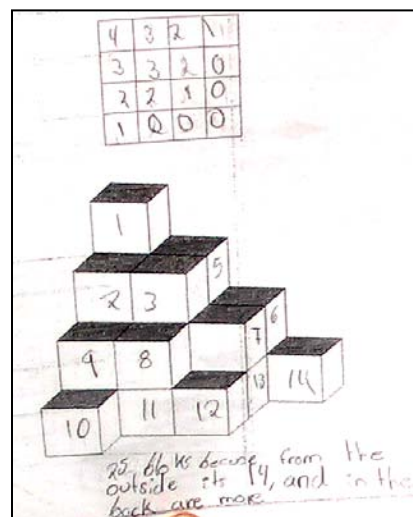 4 3 2 1
3 3 2 0
2 2 1 0
1 0 0 0
1
5
2 3
6
7
9 8
13 14
11 12
10
25 bloks becuse, from the
outside its 14, and in the
back are more